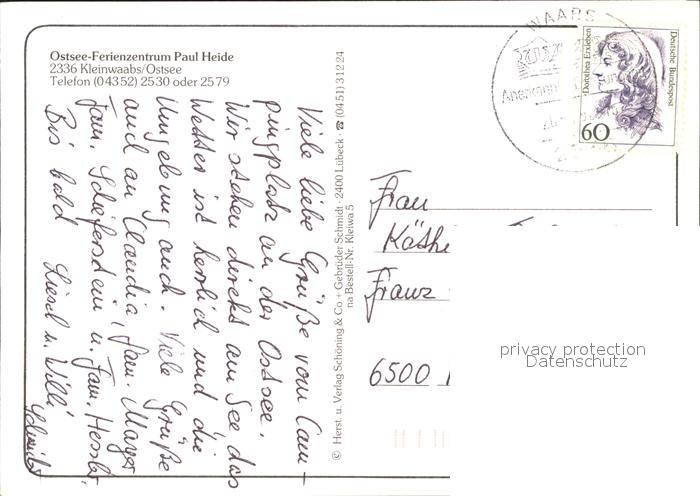 Ostsee-Ferienzentrum Paul Heide
2336 Kleinwaabs/Ostsee
Telefon (04352) 2530 oder 2579
Viele liebe Grüße vom Cam-
pingplatz an der Ostsee.
Wir stehen direkt am See, das
Wetter ist herrlich und die
Umgebung auch. Viele Grüße
auch an Claudia, Fam. Mayer
Fam. Schieferstein u. Fam. Hessler.
Bis bald Liesel u. Willi
Schmidt
© Herst. u. Verlag Schöning & Co + Gebrüder Schmidt · 2400 Lübeck · ☎ (0451) 31224
na Bestell-Nr. Kleiwa 5
WAABS
Anerkann
Dorothea Erxleben
Deutsche Bundespost
60
Frau
Käthe
Franz
6500
privacy protection
Datenschutz